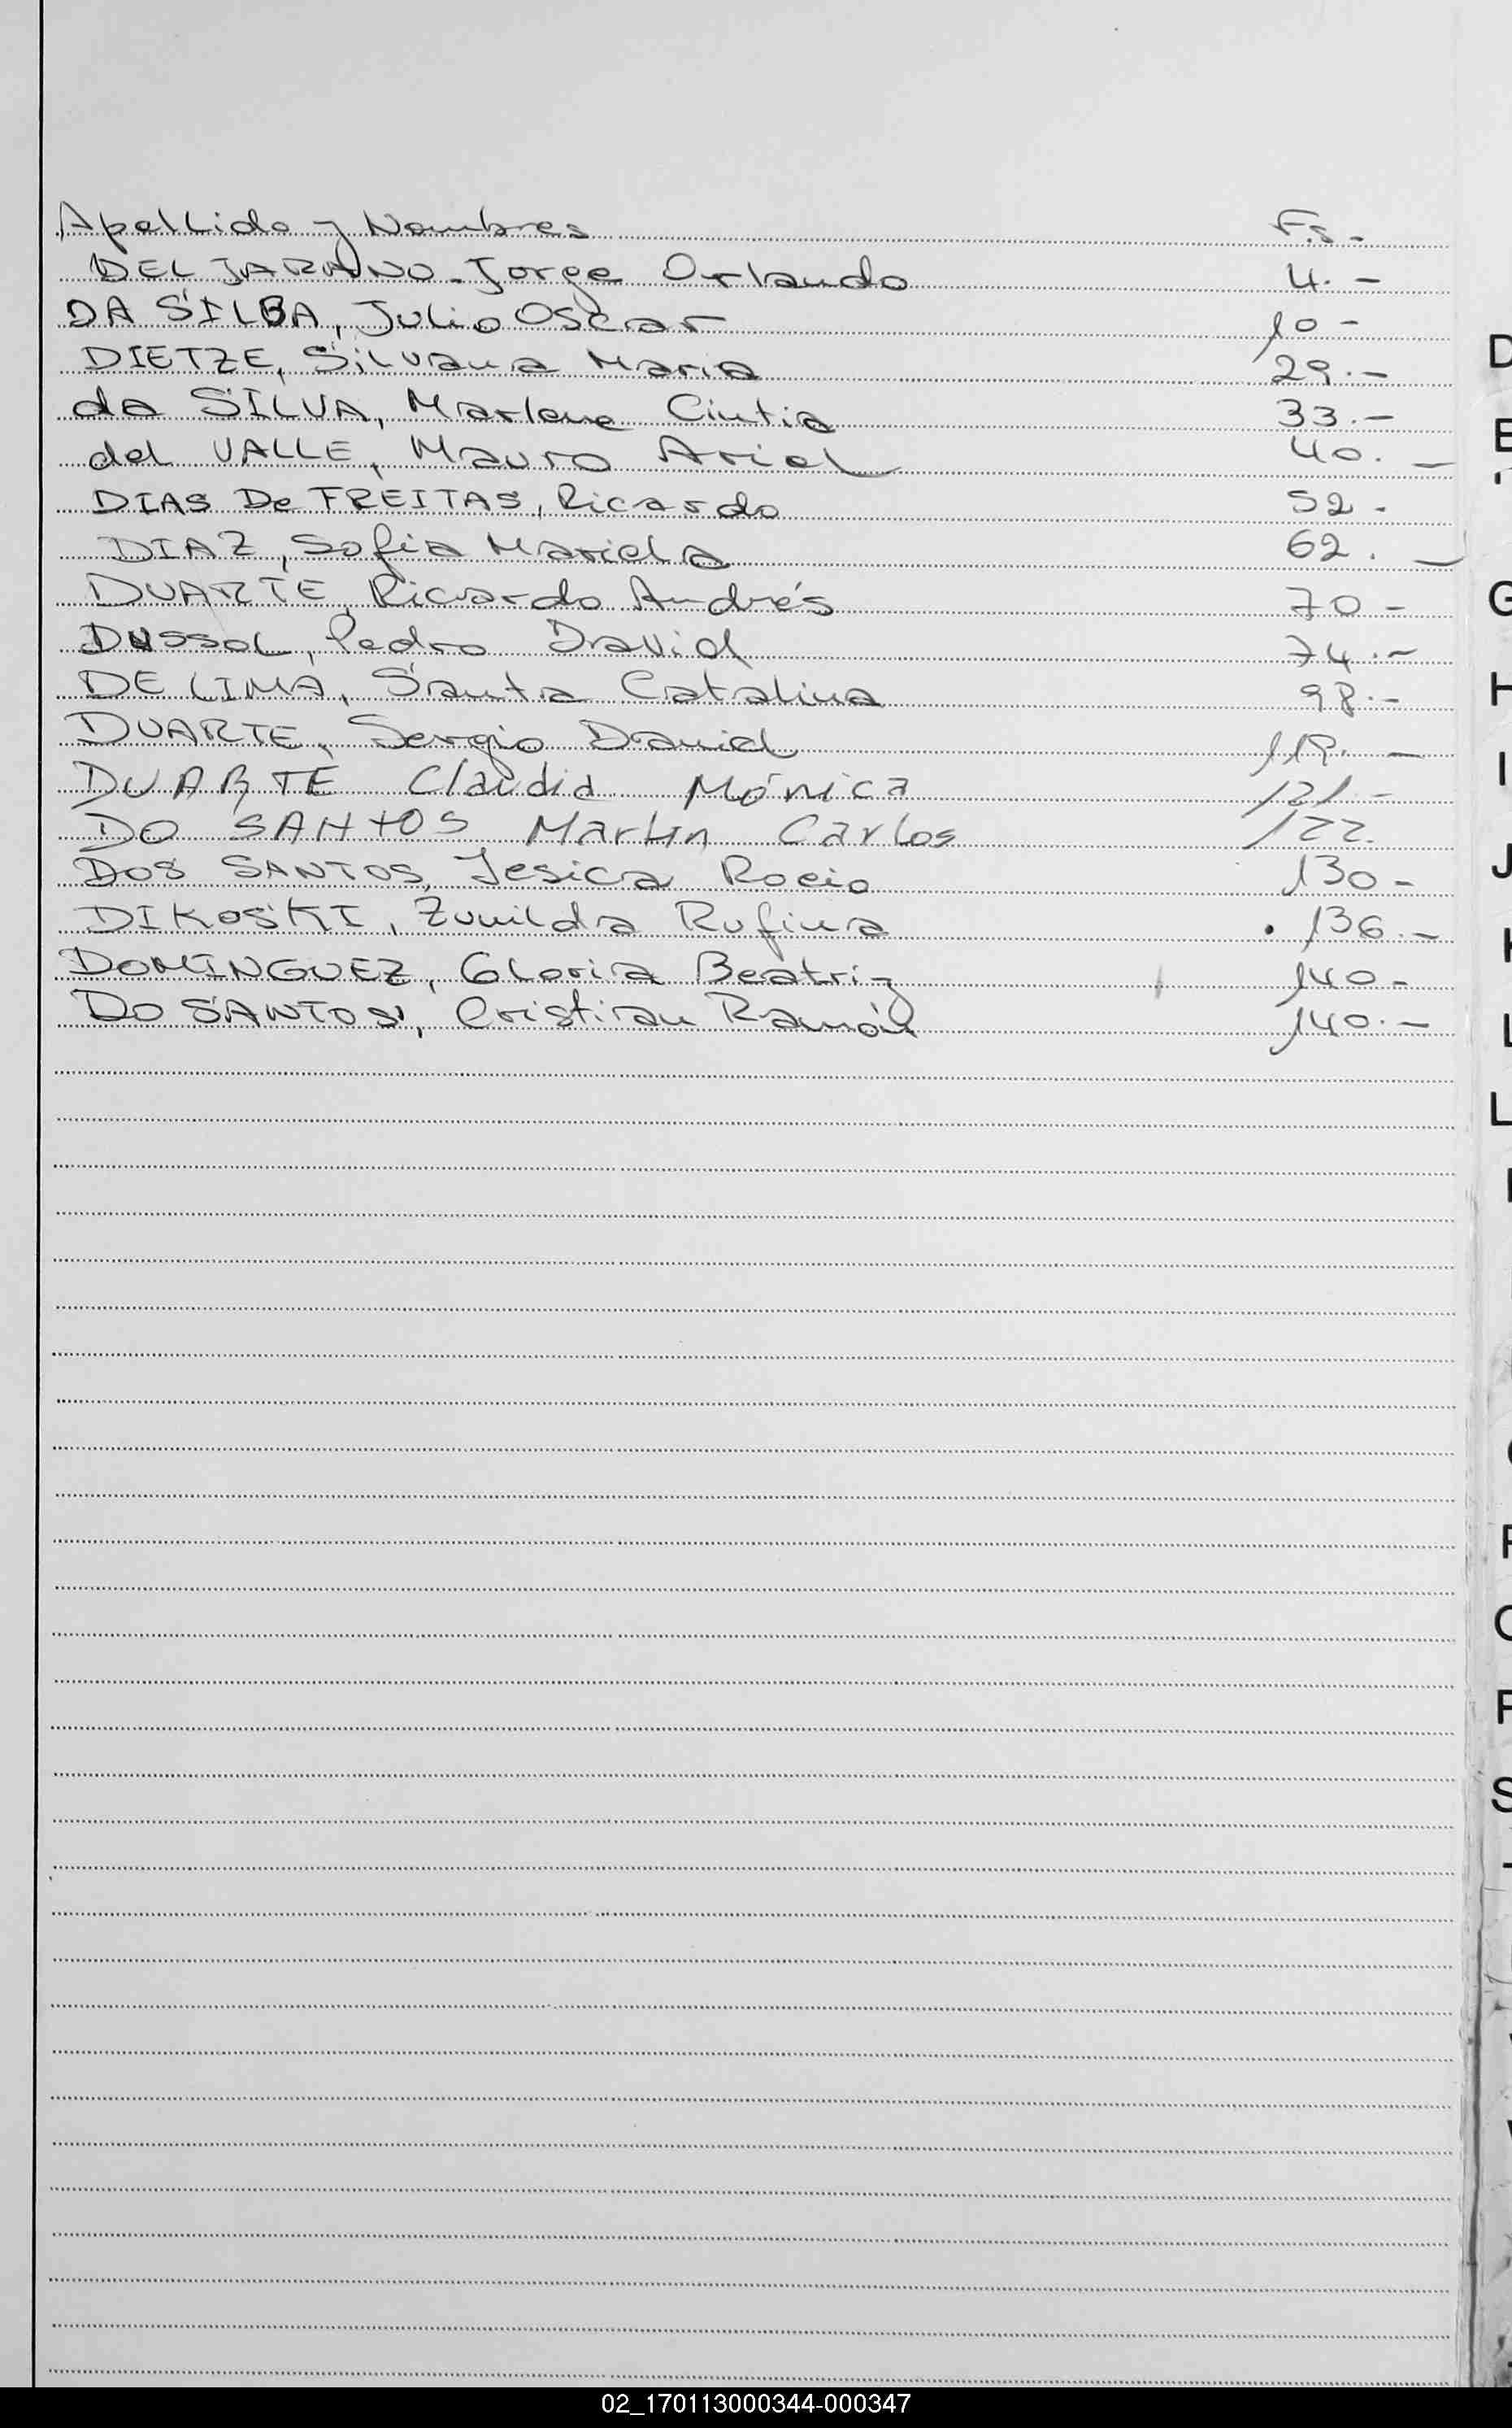 Apellido y Nombres Fs.-
DEL JARANO - Jorge Orlando 4.-
DA SILBA, Julio Oscar 10-
DIETZE, Silvana Maria 29.-
da SILVA, Marlene Cintia 33.-
del VALLE, Mauro Ariel 40.-
DIAS De FREITAS, Ricardo 52.-
DIAZ, Sofia Mariela 62.-
DUARTE, Ricardo Andrés 70-
DUSSOL, Pedro David 74.-
DE LIMA, Santa Catalina 98.-
DUARTE, Sergio Daniel 119.-
DUARTE Claudia Mónica 121.-
DO SANTOS Martin Carlos 122.
DOS SANTOS, Jesica Rocio 130-
DIKOSKI, Zunilda Rufina 136.-
DOMINGUEZ, Gloria Beatriz 140-
DO SANTOS, Cristian Ramón 140.-
D
E
G
H
I
J
K
L
L
S
02_170113000344-000347